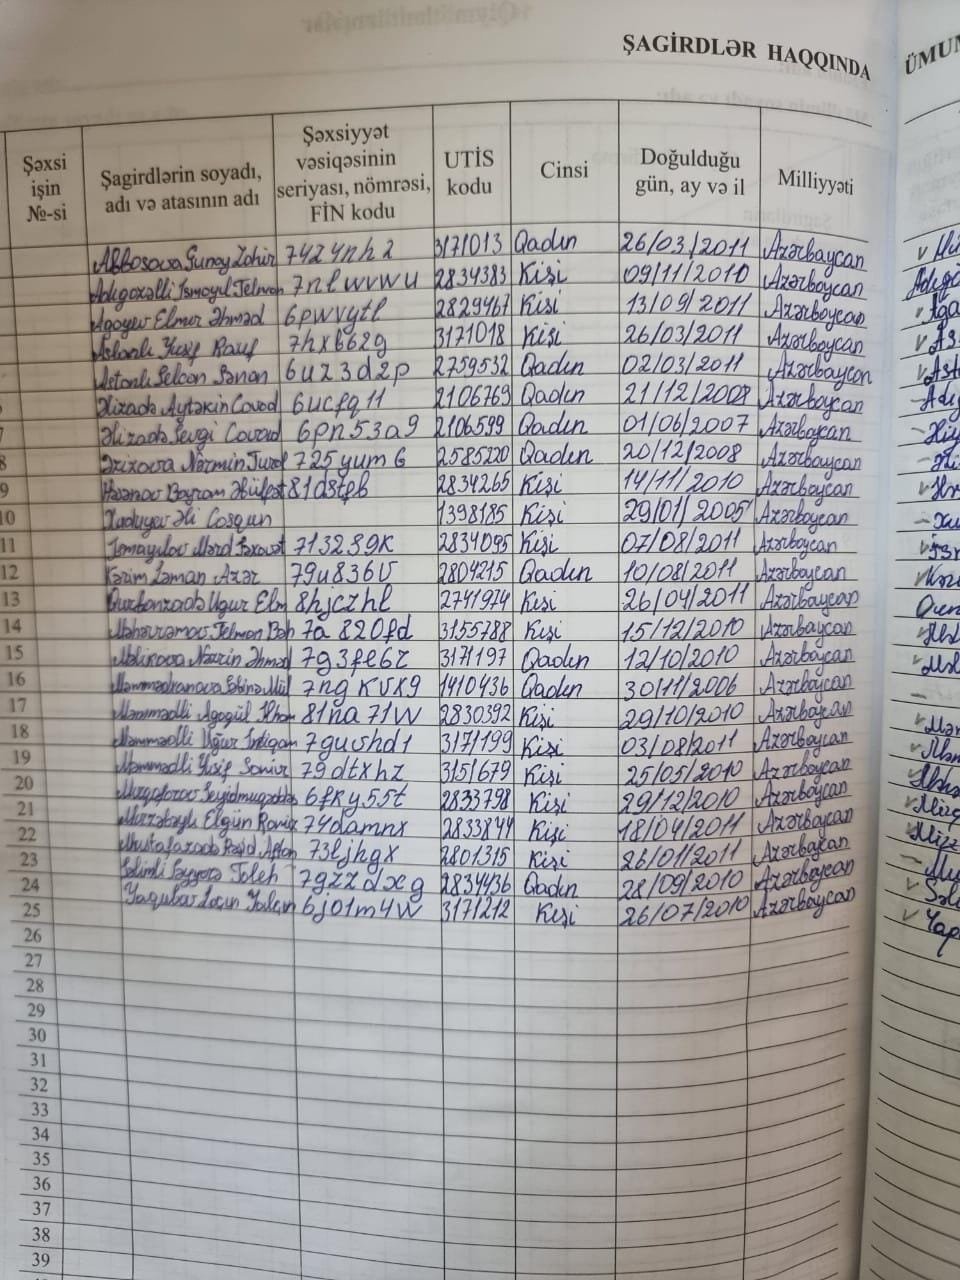 ŞAGİRDLƏR HAQQINDA
ÜMUM
Şəxsi işin №-si
Şagirdlərin soyadı, adı və atasının adı
Şəxsiyyət vəsiqəsinin seriyası, nömrəsi, FİN kodu
UTİS kodu
Cinsi
Doğulduğu gün, ay və il
Milliyyəti
Abbasova Sunay Zahir 3171013 Qadın 26/03/2011 Azərbaycan
Adıgözəlli İsmayıl Telman 7nlwvwu 2834383 Kişi 09/11/2010 Azərbaycan
Agayev Elmir Əhməd 6pwvytl 2829467 Kişi 13/09/2011 Azərbaycan
Aslanlı Yusif Rauf 7hxb62g 3171018 Kişi 26/03/2011 Azərbaycan
Astanlı Selcan Sənan 6uz3d2p 2759532 Qadın 02/03/2011 Azərbaycan
Əlizadə Aytəkin Cavad 6ucfq11 2106769 Qadın 21/12/2008 Azərbaycan
7 Əlizadə Sevgi Cavad 6pn53a9 2106599 Qadın 01/06/2007 Azərbaycan
8 Əzizova Nərmin Tural 725yum6 2585220 Qadın 20/12/2008 Azərbaycan
9 Həsənov Bayram Əbülfət 2834265 Kişi 14/11/2010 Azərbaycan
10 Xadıyev Əli Cosqun 1398185 Kişi 29/01/2005 Azərbaycan
11 İsmayılov Mərd 713289k 2834095 Kişi 07/08/2011 Azərbaycan
12 Kərim Zaman Azər 79u836v 2804215 Qadın 10/08/2011 Azərbaycan
13 Qurbanzadə Uğur Elm 8hjczhl 2741974 Kişi 26/04/2011 Azərbaycan
14 Məhərrəmov Telman Bəh 7a820fd 3155788 Kişi 15/12/2010 Azərbaycan
15 Məlikova Nəzrin Əhməd 7g3fe6z 3171197 Qadın 12/10/2010 Azərbaycan
16 Məmmədxanova Səbinə 7ngkvx9 1410436 Qadın 30/11/2006 Azərbaycan
17 Məmmədli Agagül İlham 81na71w 2830392 Kişi 29/10/2010 Azərbaycan
18 Məmmədli Uğur İntiqam 7gushd1 3171199 Kişi 03/08/2011 Azərbaycan
19 Məmmədli Yusif Samir 79dtxhz 3151679 Kişi 25/05/2010 Azərbaycan
20 6fky55t 2833798 Kişi 29/12/2010 Azərbaycan
21 Mirzəbəyli Elgün Ramiz 74damnx 2833844 Kişi 18/04/2011 Azərbaycan
22 Mustafazadə Rəşid Aftan 73ljhgx 2801315 Kişi 26/01/2011 Azərbaycan
23 Səlimli Səyyarə Taleh 7gzzdxg 2834436 Qadın 28/09/2010 Azərbaycan
24 Yaqubov Laçın Yalçın 6j01m4w 3171212 Kişi 26/07/2010 Azərbaycan
25
26
27
28
29
30
31
32
33
34
35
36
37
38
39